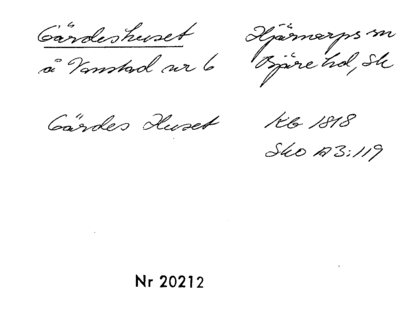 Gärdeshuset Hjärnarps sn
å Vanstad nr 6 Bjäre hd, Sk
Gärdes Huset Kb 1818
Sko A3:119
Nr 20212